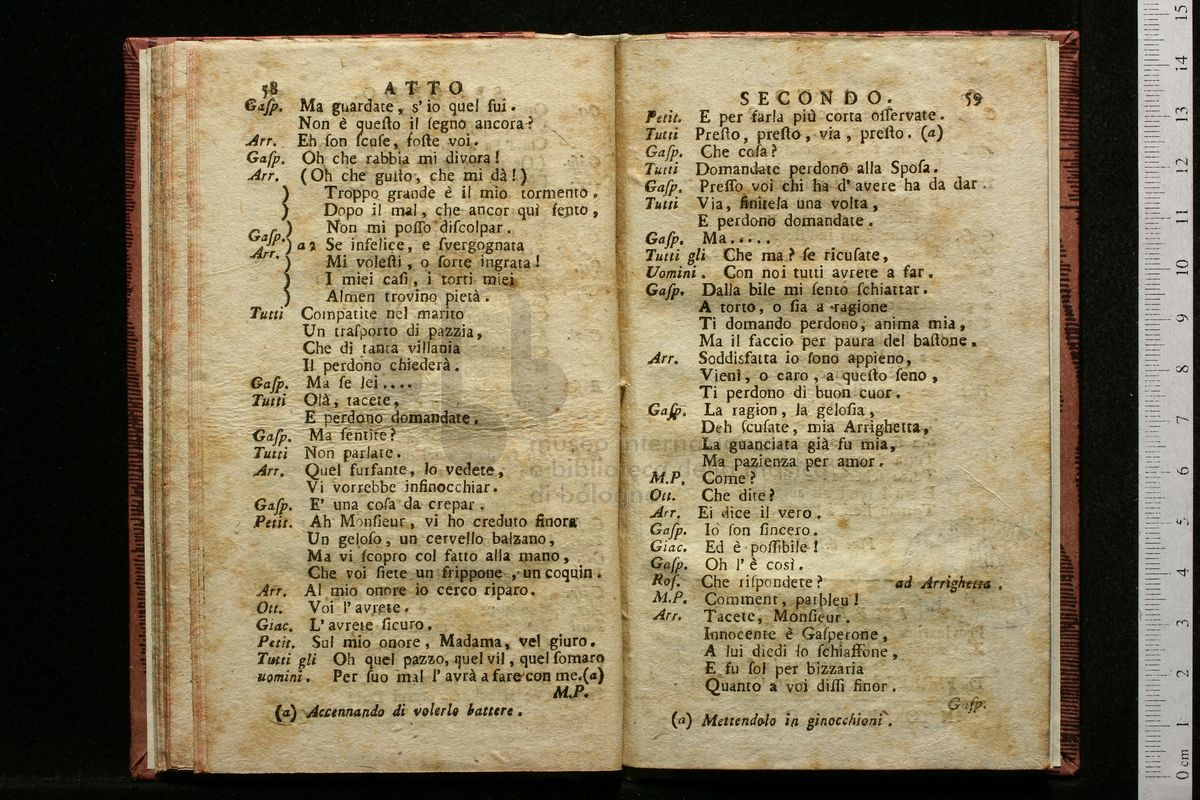 58 ATTO
Gaſp. Ma guardate, s'io quel fui.
Non è queſto il ſegno ancora?
Arr. Eh ſon ſcuſe, foſte voi.
Gaſp. Oh che rabbia mi divora!
Arr. (Oh che guſto, che mi dà!)
Troppo grande è il mio tormento.
Dopo il mal, che ancor qui ſento,
Non mi poſſo diſcolpar.
Gaſp. Arr. a 2 Se infelice, e ſvergognata
Mi voleſti, o ſorte ingrata!
I miei caſi, i torti miei
Almen trovino pietà.
Tutti Compatite nel marito
Un traſporto di pazzia,
Che di tanta villania
Il perdono chiederà.
Gaſp. Ma ſe lei....
Tutti Olà, tacete,
E perdono domandate.
Gaſp. Ma ſentite?
Tutti Non parlate.
Arr. Quel furfante, lo vedete,
Vi vorrebbe infinocchiar.
Gaſp. E' una coſa da crepar.
Petit. Ah Monſieur, vi ho creduto finora
Un geloſo, un cervello balzano,
Ma vi ſcopro col fatto alla mano,
Che voi ſiete un frippone, un coquin.
Arr. Al mio onore io cerco riparo.
Ott. Voi l'avrete.
Giac. L'avrete ſicuro.
Petit. Sul mio onore, Madama, vel giuro.
Tutti gli Oh quel pazzo, quel vil, quel ſomaro
uomini. Per ſuo mal l'avrà a fare con me.(a)
M.P.
(a) Accennando di volerlo battere.
SECONDO. 59
Petit. E per farla più corta oſſervate.
Tutti Preſto, preſto, via, preſto. (a)
Gaſp. Che coſa?
Tutti Domandate perdono alla Spoſa.
Gaſp. Preſſo voi chi ha d'avere ha da dar.
Tutti Via, finitela una volta,
E perdono domandate.
Gaſp. Ma.....
Tutti gli Che ma? ſe ricuſate,
Uomini. Con noi tutti avrete a far.
Gaſp. Dalla bile mi ſento ſchiattar.
A torto, o ſia a ragione
Ti domando perdono, anima mia,
Ma il faccio per paura del baſtone.
Arr. Soddisfatta io ſono appieno,
Vieni, o caro, a queſto ſeno,
Ti perdono di buon cuor.
Gaſp. La ragion, la geloſia,
Deh ſcuſate, mia Arrighetta,
La guanciata già fu mia,
Ma pazienza per amor.
M.P. Come?
Ott. Che dite?
Arr. Ei dice il vero.
Gaſp. Io ſon ſincero.
Giac. Ed è poſſibile!
Gaſp. Oh l'è così.
Roſ. Che riſpondete? ad Arrighetta.
M.P. Comment, parbleu!
Arr. Tacete, Monſieur.
Innocente è Gaſperone,
A lui diedi lo ſchiaffone,
E fu ſol per bizzaria
Quanto a voi diſſi finor.
Gaſp.
(a) Mettendolo in ginocchioni.
museo
e biblioteca
di bologna
15
14
13
12
11
10
9
8
7
6
5
4
3
2
1
0 cm